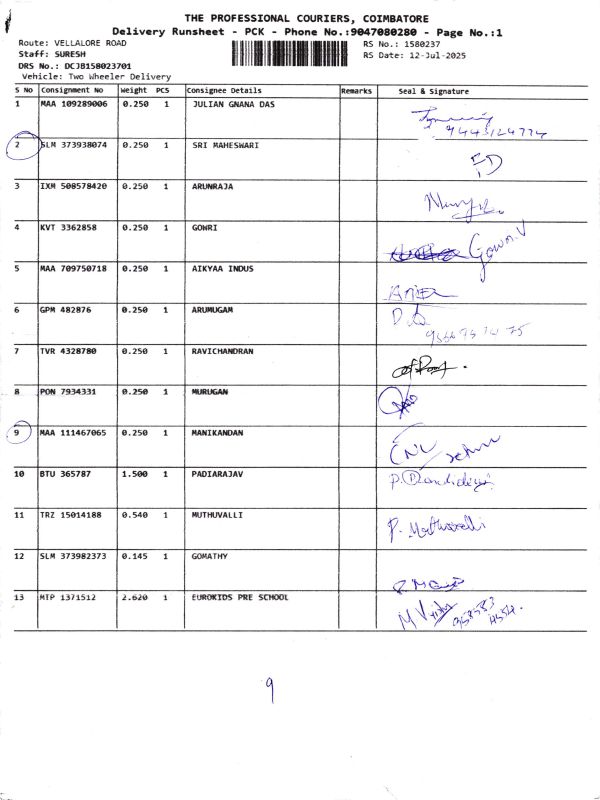 THE PROFESSIONAL COURIERS, COIMBATORE
Delivery Runsheet - PCK - Phone No.:9047080280 - Page No.:1
Route: VELLALORE ROAD RS No.: 1580237
Staff: SURESH RS Date: 12-Jul-2025
DRS No.: DCJB158023701
Vehicle: Two Wheeler Delivery
S No Consignment No Weight PCS Consignee Details Remarks Seal & Signature
1 MAA 109289006 0.250 1 JULIAN GNANA DAS
2 SLM 373938074 0.250 1 SRI MAHESWARI
3 IXM 508578420 0.250 1 ARUNRAJA
4 KVT 3362858 0.250 1 GOWRI Gowri.V
5 MAA 709750718 0.250 1 AIKYAA INDUS
6 GPM 482876 0.250 1 ARUMUGAM
7 TVR 4328780 0.250 1 RAVICHANDRAN
8 PON 7934331 0.250 1 MURUGAN
9 MAA 111467065 0.250 1 MANIKANDAN return
10 BTU 365787 1.500 1 PADIARAJAV
11 TRZ 15014188 0.540 1 MUTHUVALLI P. Muthuvalli
12 SLM 373982373 0.145 1 GOMATHY
13 MTP 1371512 2.620 1 EUROKIDS PRE SCHOOL
9